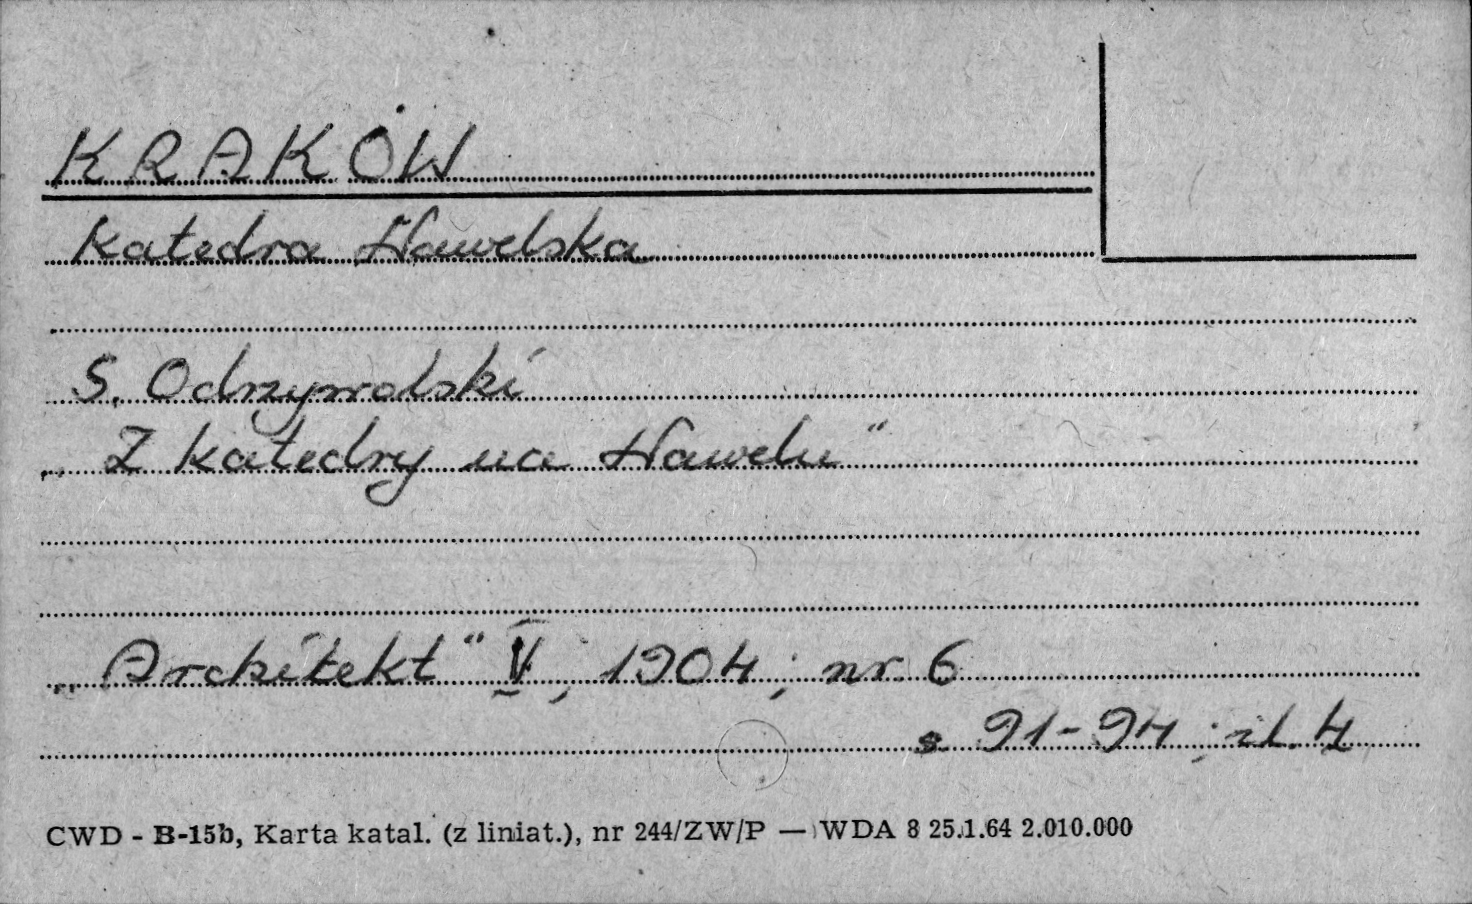 KRAKÓW
Katedra Wawelska
S. Odrzywolski
„Z katedry na Wawelu"
„Architekt" V, 1904; nr. 6
s. 91-94; il. 4
CWD - B-15b, Karta katal. (z liniat.), nr 244/ZW/P — WDA 8 25.1.64 2.010.000